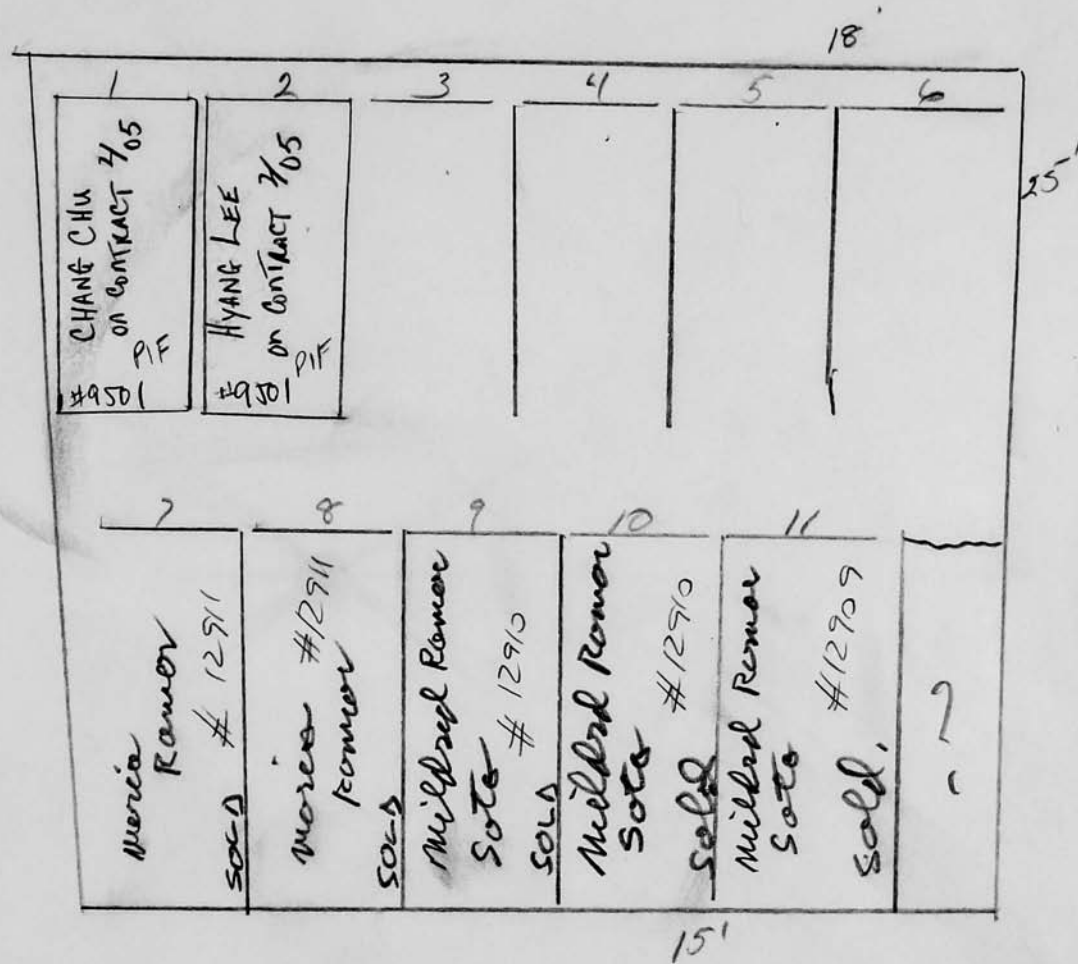 18'
1 2 3 4 5 6
25'
CHANG CHU
on CONTRACT 2/05
PIF
#9501
HYANG LEE
on CONTRACT 2/05
PIF
#9501
7 8 9 10 11
Maria
Ramor
# 12911
SOLD
Maria #12911
Romor
SOLD
Mildred Romor
Soto
# 12910
SOLD
Mildred Romor
Soto
#12910
Sold
Mildred Romor
Soto
#12909
Sold.
?
15'